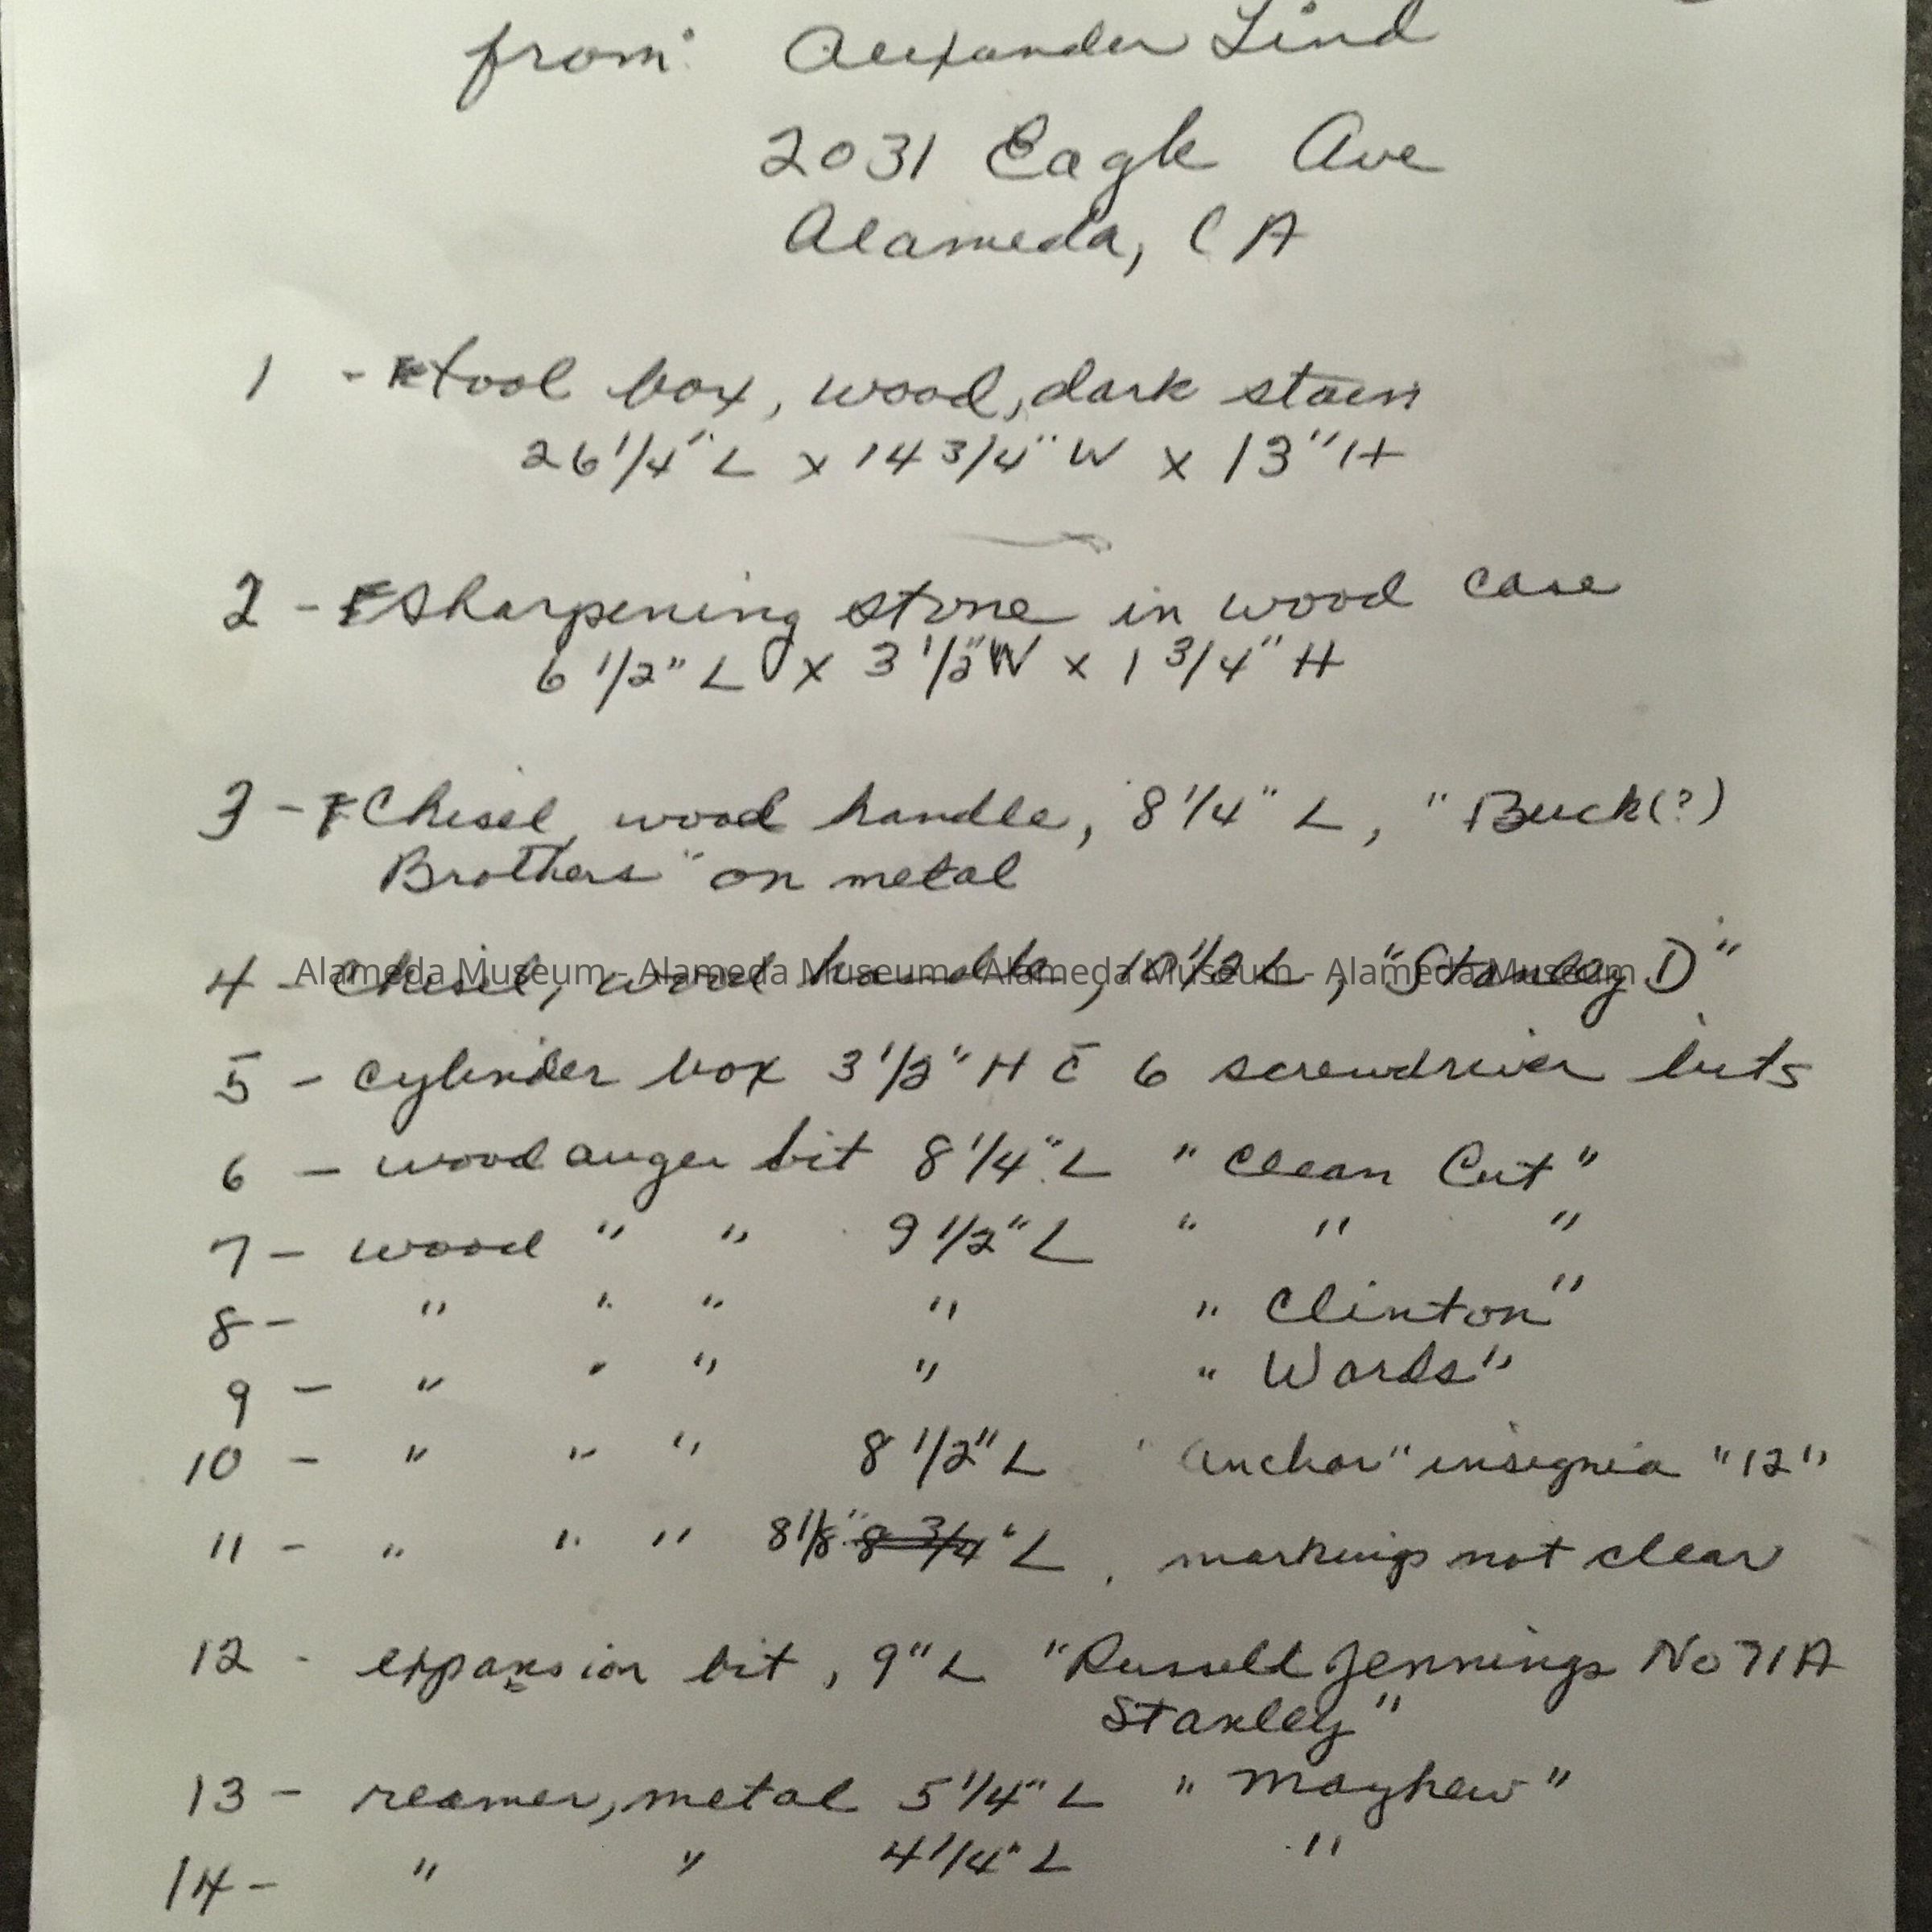 from: Alexander Lind
2031 Eagle Ave
Alameda, CA
1 - tool box, wood, dark stain
26 1/4" L x 14 3/4" W x 13" H
2 - Sharpening stone in wood case
6 1/2" L x 3 1/2" W x 1 3/4" H
3 - Chisel, wood handle, 8 1/4" L, "Buck(?)
Brothers" on metal
4 - Chisel, wood handle, 10 1/2 L, "Stanley D"
Alameda Museum - Alameda Museum - Alameda Museum - Alameda Museum
5 - cylinder box 3 1/2" H c̄ 6 screwdriver bits
6 - wood auger bit 8 1/4" L "Clean Cut"
7 - wood " " 9 1/2" L " " "
8 - " " " " "Clinton"
9 - " " " " "Wards"
10 - " " " 8 1/2" L "anchor" insignia "12"
11 - " " " 8 1/8" 8 3/4" L, markings not clear
12 - expansion bit, 9" L "Russell Jennings No 71A
Stanley"
13 - reamer, metal 5 1/4" L "Mayhew"
14 - " " 4 1/4" L "